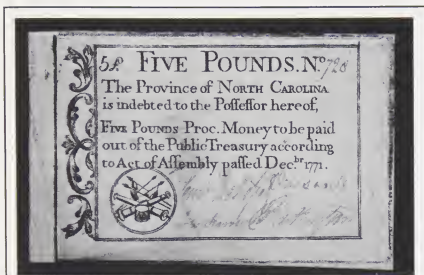 5£ FIVE POUNDS. Nº 728
The Province of NORTH CAROLINA
is indebted to the Poſſeſſor hereof,
FIVE POUNDS Proc. Money to be paid
out of the Public Treasury according
to Act of Aſſembly paſſed Dec.br 1771.